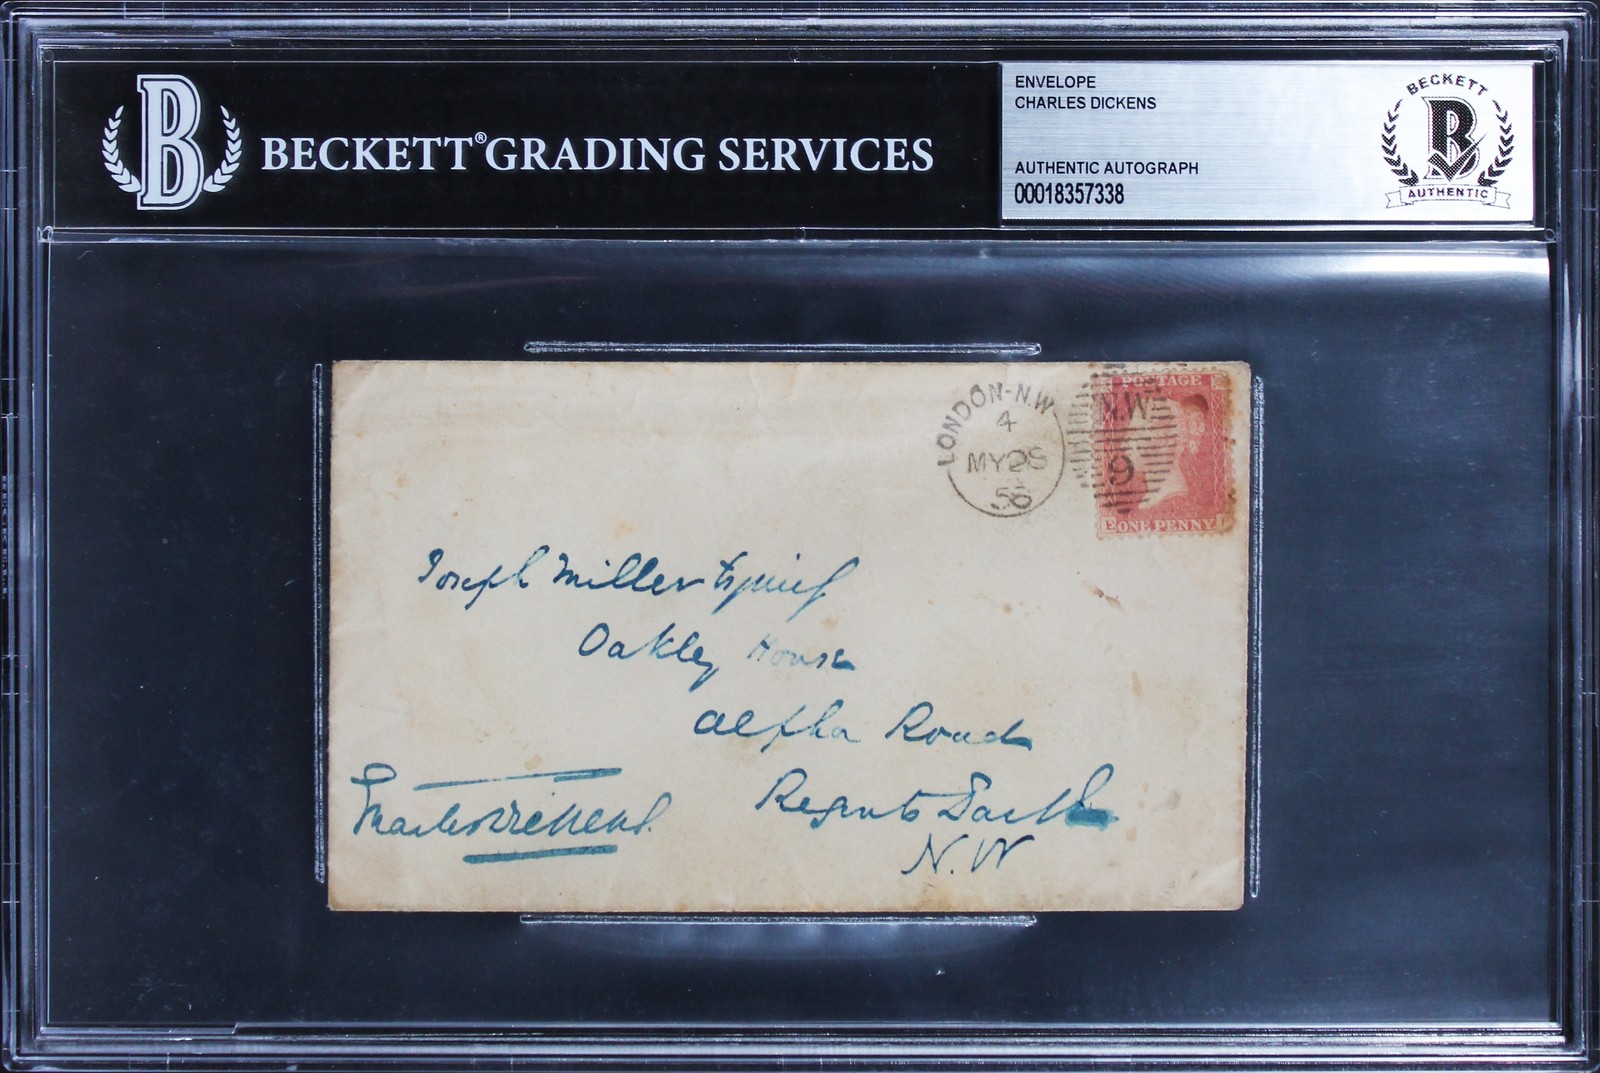 BECKETT® GRADING SERVICES
ENVELOPE
CHARLES DICKENS
AUTHENTIC AUTOGRAPH
00018357338
BECKETT
B
AUTHENTIC
B
LONDON-N.W
4
MY28
56
POSTAGE
N.W
9
E ONE PENNY
Joseph Miller Esquire
Oakley House
Alpha Road
Regents Park
N.W
Charles Dickens